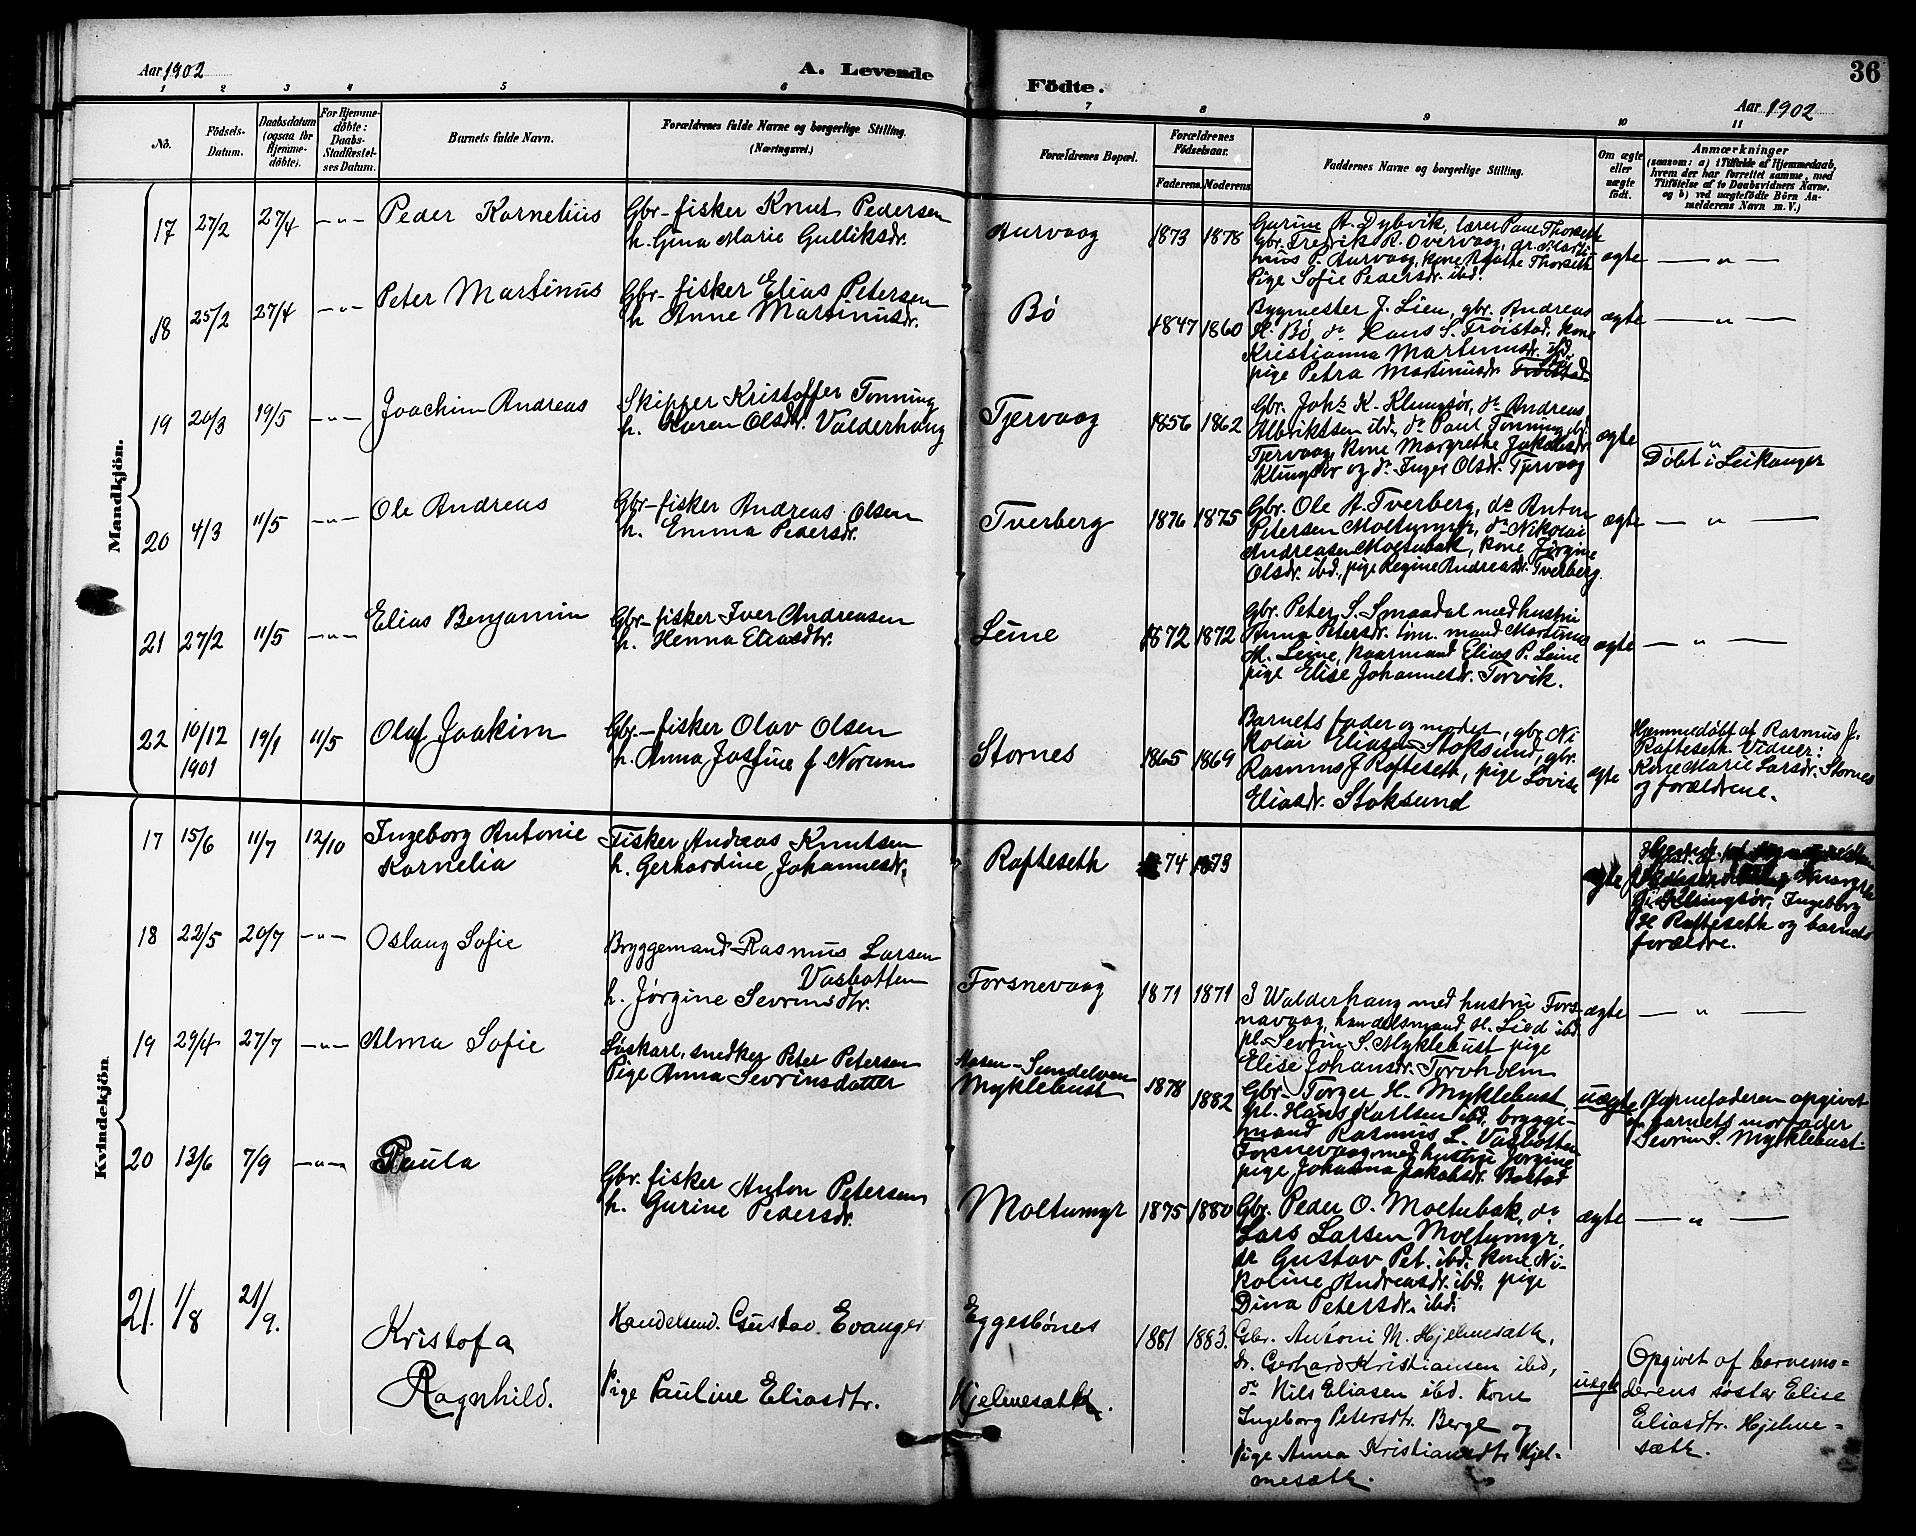 Aar 1902
A. Levende
Födte.
36
Aar 1902
1 2 3 4 5 6 7 8 9 10 11
No.
Födsels-
Datum.
Daabsdatum
(ogsaa for
Hjemme-
döbte).
For Hjemme-
döbte:
Daabs-
Stadfæstel-
ses Datum.
Barnets fulde Navn.
Forældrenes fulde Navne og borgerlige Stilling.
(Næringsvei.)
Forældrenes Bopæl.
Forældrenes
Födselsaar.
Faderens. Moderens
Faddernes Navne og borgerlige Stilling.
Om ægte
eller
uægte
födt.
Anmærkninger
(saasom: a) i Tilfælde af Hjemmedaab,
hvem der har forrettet samme, med
Tilföielse af to Daabsvidners Navne.
og b) ved uægtefödte Börn An-
melderens Navn m. V.)
Mandkjön.
17 27/2 27/4 — " — Peder Kornelius
Gbr-fisker Knut Pedersen
h. Gina Marie Gulliksdr.
Aurvaag 1873 1878
Gurine A. Dybvik, lærer Paul Thorseth
Gbr. Fredrik R. Overvaag, dr. Marti-
nus P. Aurvaag, kone Agathe Thorseth
Pige Sofie Pedersdr. ibd.
ægte — " —
18 25/2 27/4 — " — Peter Martinus
Gbr-fisker Elias Petersen
h Anne Martinusdr.
Bø 1847 1860
Bygmester J. Lien, gbr. Andreas
H. Bø, do Hans S. Frøistad, kone
Kristianna Martinusdr. ibd.
pige Petra Martinusdr. Bø
ægte — " —
19 20/3 19/5 — " — Joachim Andreas
Skipper Kristoffer Tonning
h. Karen Olsdtr. Valderhaug
Tjervaag 1856 1862
Gbr. Johs K. Klungsør, do Andreas
Albriktsen ibd, do Paul Tonning, ibd.
Tjervaag, kone Margrethe Jakobsdr
Klungsør og do Inger Olsdr. Tjervaag
ægte "
Døbt i Leikanger
20 4/3 11/5 — " — Ole Andreas
Gbr-fisker Andreas Olsen
h. Emma Pedersdr.
Tverberg 1876 1875
Gbr. Ole A. Tverberg, do Anton
Petersen Moltumyr, do Nikolai
Andreasen Moltubak, kone Jørgine
Olsdr. ibd., pige Regine Andreasdr. Tverberg.
ægte — " —
21 27/2 11/5 — " — Elias Benjamin
Gbr-fisker Iver Andreasen
h. Henna Eliasdtr.
Leine 1872 1872
Gbr. Peter S. Smaadal med hustru
Anna Petersdr. tøm. mand Martinus
M. Leine, kaarmand Elias P. Leine
pige Elise Johannesdr. Torvik.
ægte — " —
22 10/12 1901 19/1 11/5 Olaf Joakim
Gbr-fisker Olav Olsen
h. Anna Josfine f. Norum
Stornes 1865 1869
Barnets fader og moder, gbr. Ni
kolai Eliasen Stoksund, gbr.
Rasmus J. Rafteseth, pige Lovise
Eliasdr. Stoksund
ægte
Hjemmedøbt af Rasmus J.
Rafteseth. Vidner:
Kone Marie Larsdr. Stornes
og forældrene.
Kvindekjön
17 15/6 11/7 12/10 Ingeborg Antonie
Kornelia
Fisker Andreas Knutsen
h. Gerhardine Johannesdr.
Rafteseth 74 1873
ægte
Klungsør, Ingeborg
H Rafteseth og barnets
forældre.
18 22/5 20/7 — " — Oslaug Sofie
Bryggemand Rasmus Larsen
Vasbotten
h. Jørgine Sevrinsdtr.
Forsnevaag 1871 1871
J Walderhaug med hustru Fors-
navaag, handelsmand H. Lied ibd
pl. Sevrin S. Myklebust pige
Elise Johansdr. Torvholm
ægte — " —
19 29/4 27/7 — " — Alma Sofie
Løskarl, snedker Peter Petersen
Pige Anna Sevrinsdatter
Aasen-Sundelven
Myklebust 1878 1882
Gbr. Torger H. Myklebust,
pl. Hans Karlsen ibd, brygge-
mand Rasmus L. Vasbotten
Forsnevaag med hustru Jørgine
pige Johanna Jakobsdr. Bolstad
uægte
Barnefaderen opgivet
av barnets morfader
Sevrin S. Myklebust.
20 13/6 7/9 — " — Paula
Gbr. fisker Anton Petersen
h. Gurine Pedersdr.
Moltumyr 1875 1880
Gbr. Peder O. Moltubak, do
Lars Larsen Moltumyr,
dr Gustav Pet. ibd. kone Ni-
koline Andreasdr. ibd. pige
Dina Petersdr. ibd.
ægte — " —
21. 1/8 21/9. Kristofa
Ragnhild.
Handelsmd. Gustav Evanger
Pige Pauline Eliasdtr.
Eggesbönes
Hjelmesæth. 1881 1883.
Gbr. Antoni M. Hjelmesæth,
do. Gerhard Kristiansen ibd,
do Nils Eliasen ibd. Kone
Ingeborg Petersdtr. Berge og
Pige Anna Kristiansdtr Hjel-
mesæth.
uægte
Opgivet af barnemo-
derens søster Elise
Eliasdtr. Hjelme-
sæth.